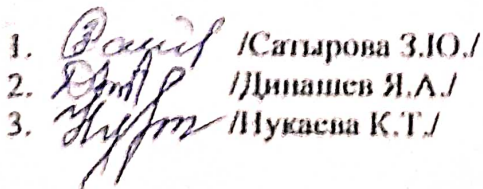 1. /Сатырова З.Ю./
2. /Динашев Я.А./
3. /Нукаева К.Т./